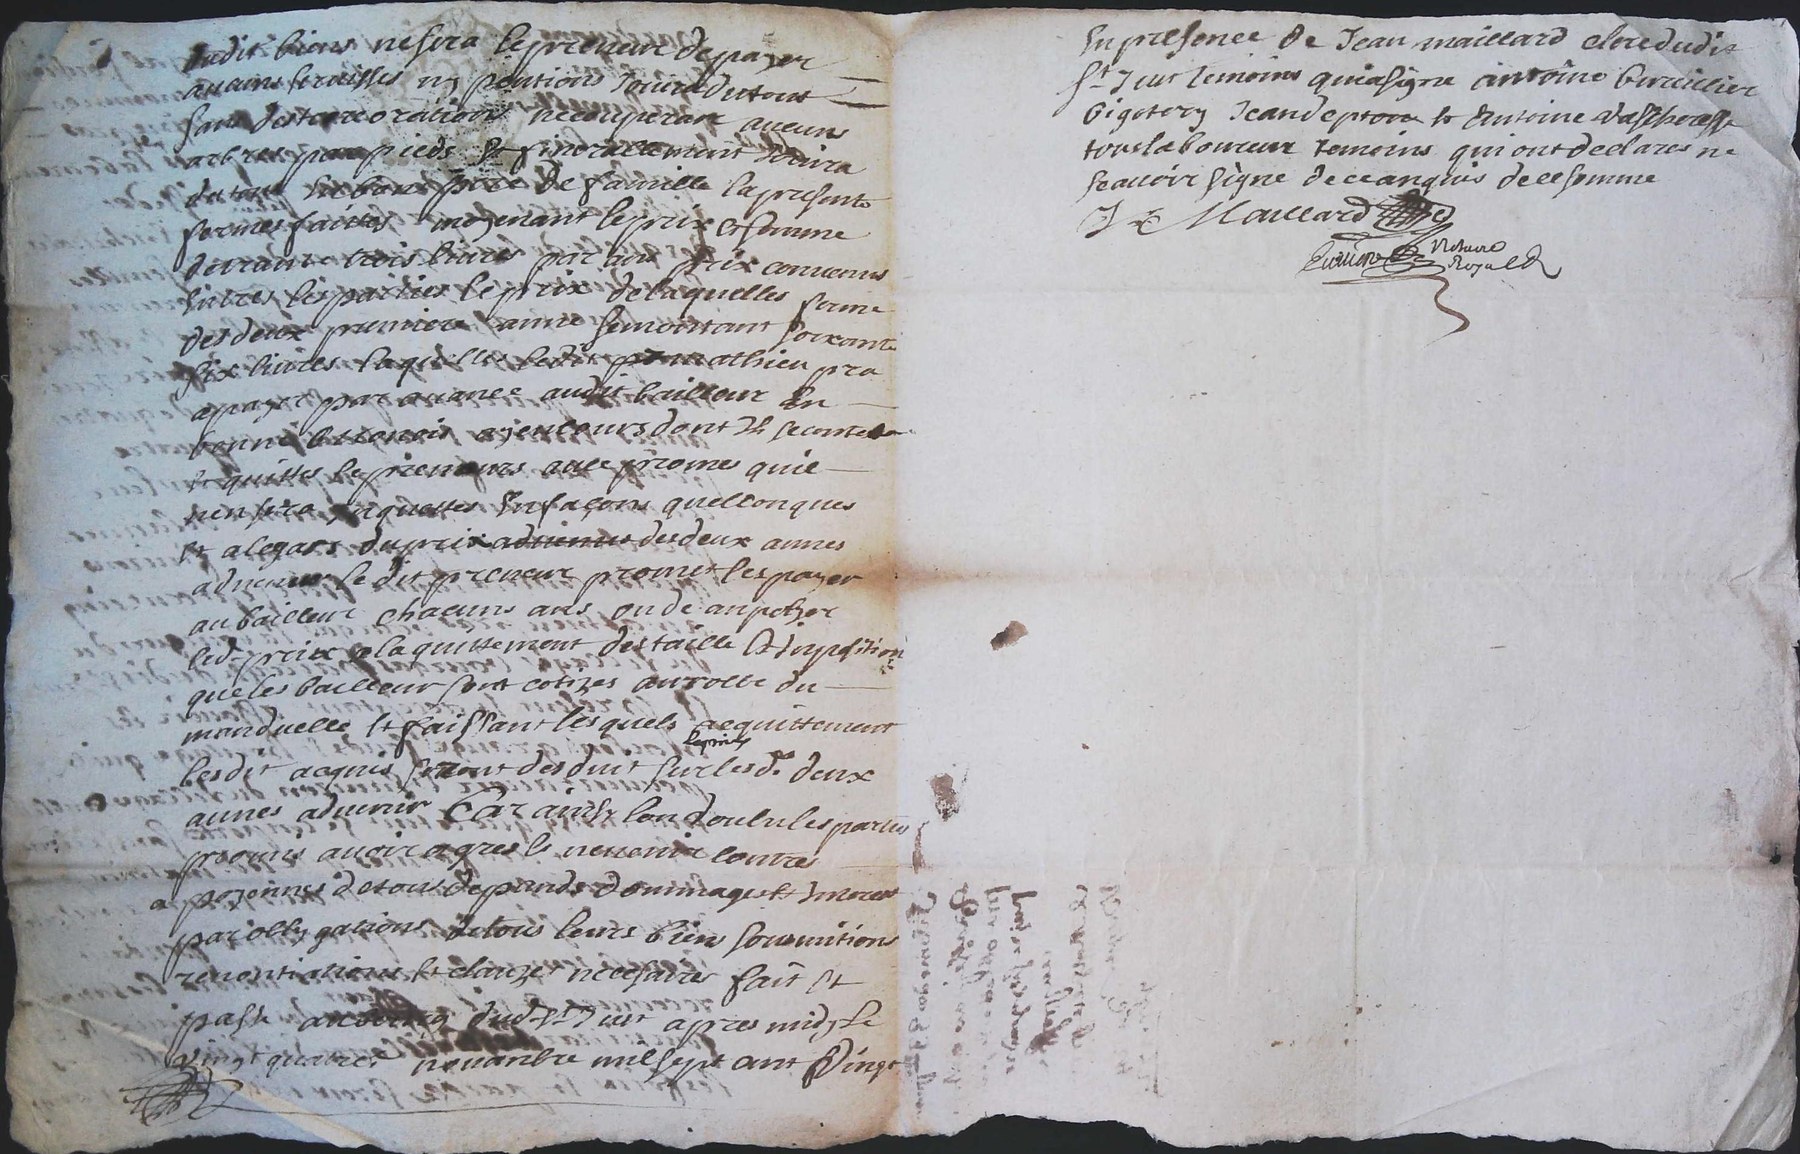 dudit biens ne sera le preneur de payer
aucuns seruisses ny pentions Jouira du tout
sans desteriorations ne couperan aucuns
arbres par pieds et finorallement Jouira
du tout en bon pere de famille la presente
fermes faittes moyenant le prix et somme
de trante trois liures par ans prix conuenus
entres les parties le prix de laquelles ferme
des deux premiere anne se montant soixante
six liures laquelles ledit mathieu pra
a payer par auance audit bailleur en
bonne ayent cours dont Il se conte
et quittes le preneurs auec promes quil
nen sera Inquettes en façons quelconques
et a legars du prix des deux annes
aduenir le dit preneur promet les payer
au bailleur chacuns ans ou de
led prix a laquittement des taille et Inpositions
que les bailleur sont cotizes au rolle du
manduelle et faissant lesquels acquittement
les dit acquis le prix seront desduit sur les d. deux
annes aduenir Car ainsy lon voulu les parties
promis auoir agres et ne uenir contres
a peyennes de tous depands dommages et Interest
par obligations de tous leurs biens soumitions
renontiations et clauzes necesaires fait et
passe au bourg dud St Just apres midy le
vingt quatre nouanbre mil sept cent vingt
En presence de Jean maillard clerc dudit
St Just temoins qui a signe antoine
Jean et Antoine
tous laboureur temoins qui ont declares ne
scauoir signe de ce anquis de le somme
J Maillard
Notaire
Royal